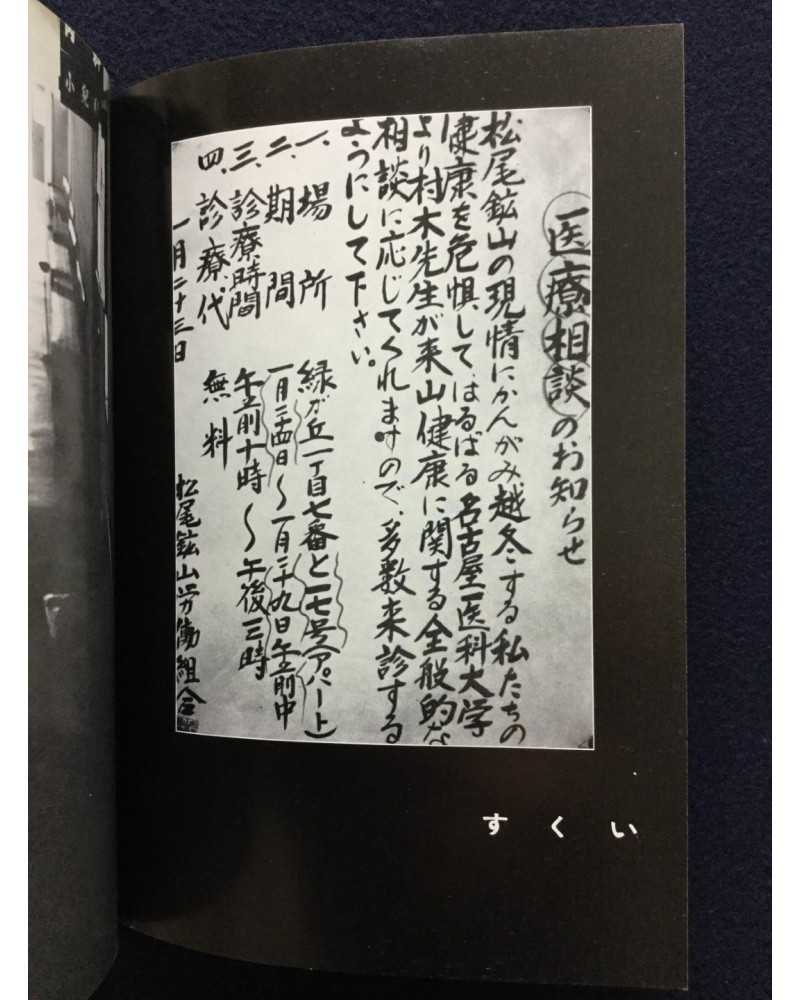 医療相談のお知らせ
松尾鉱山の現情にかんがみ、越冬する私たちの
健康を危惧して、はるばる名古屋医科大学
より村木先生が来山健康に関する全般的な
相談に応じてくれますので、多数来診する
ようにして下さい。
一、場所 緑が丘一丁目七番と一七号(アパート)
二、期間 一月二十四日〜一月二十九日午前中
三、診療時間 午前十時〜午後三時
四、診療代 無料
一月二十三日
松尾鉱山労働組合
すくい
小児